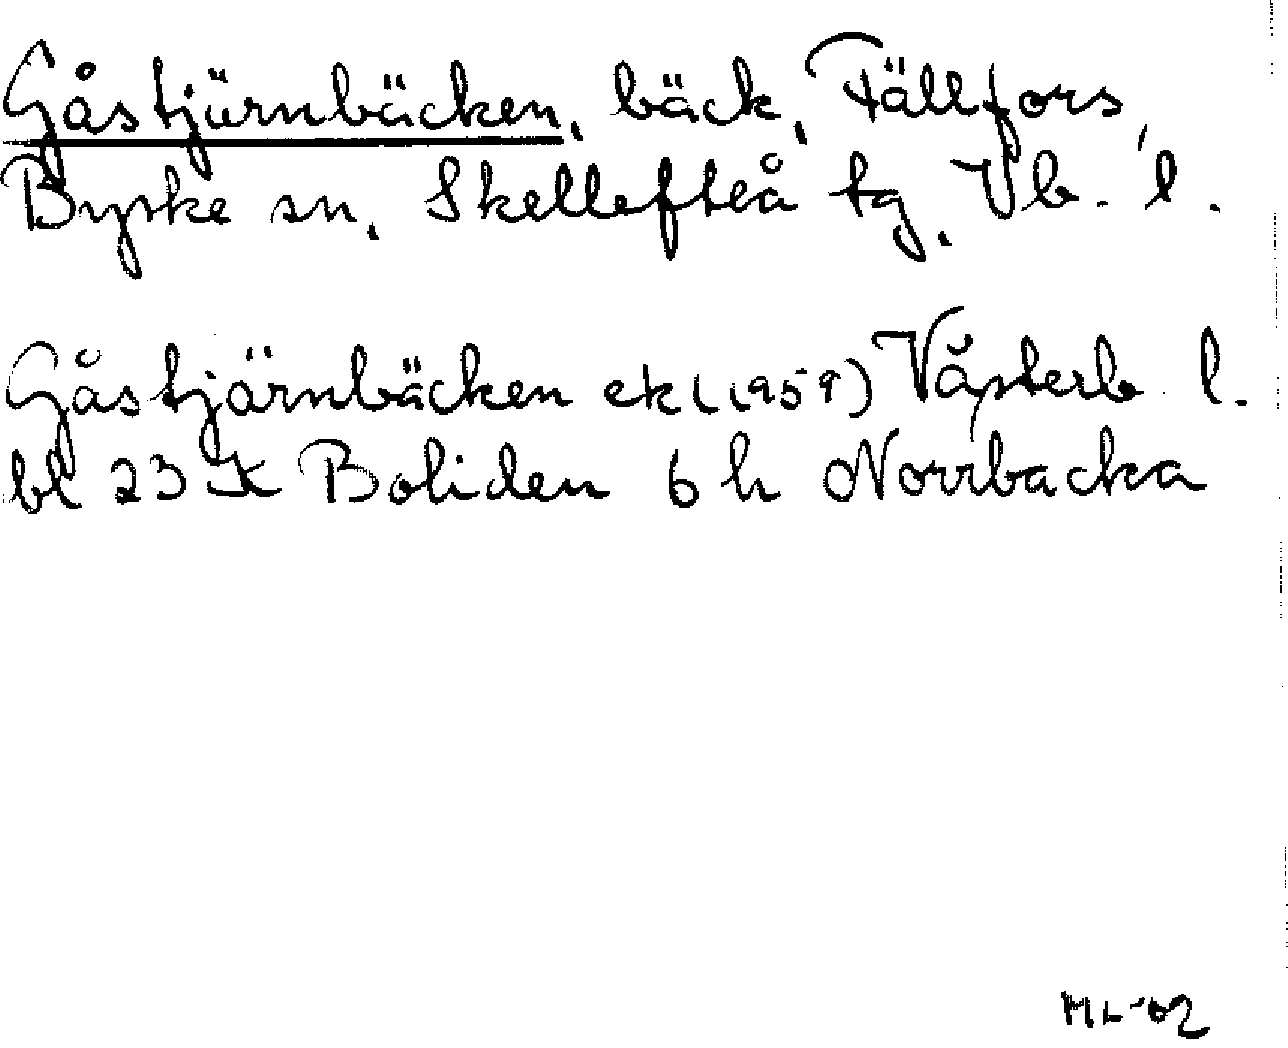 Gåstjärnbäcken, bäck, Fällfors,
Byske sn, Skellefteå tg, Vb. l.
Gåstjärnbäcken ek (1959) Västerb l.
bl 23 K Boliden 6 h Norrbacka
ML -62